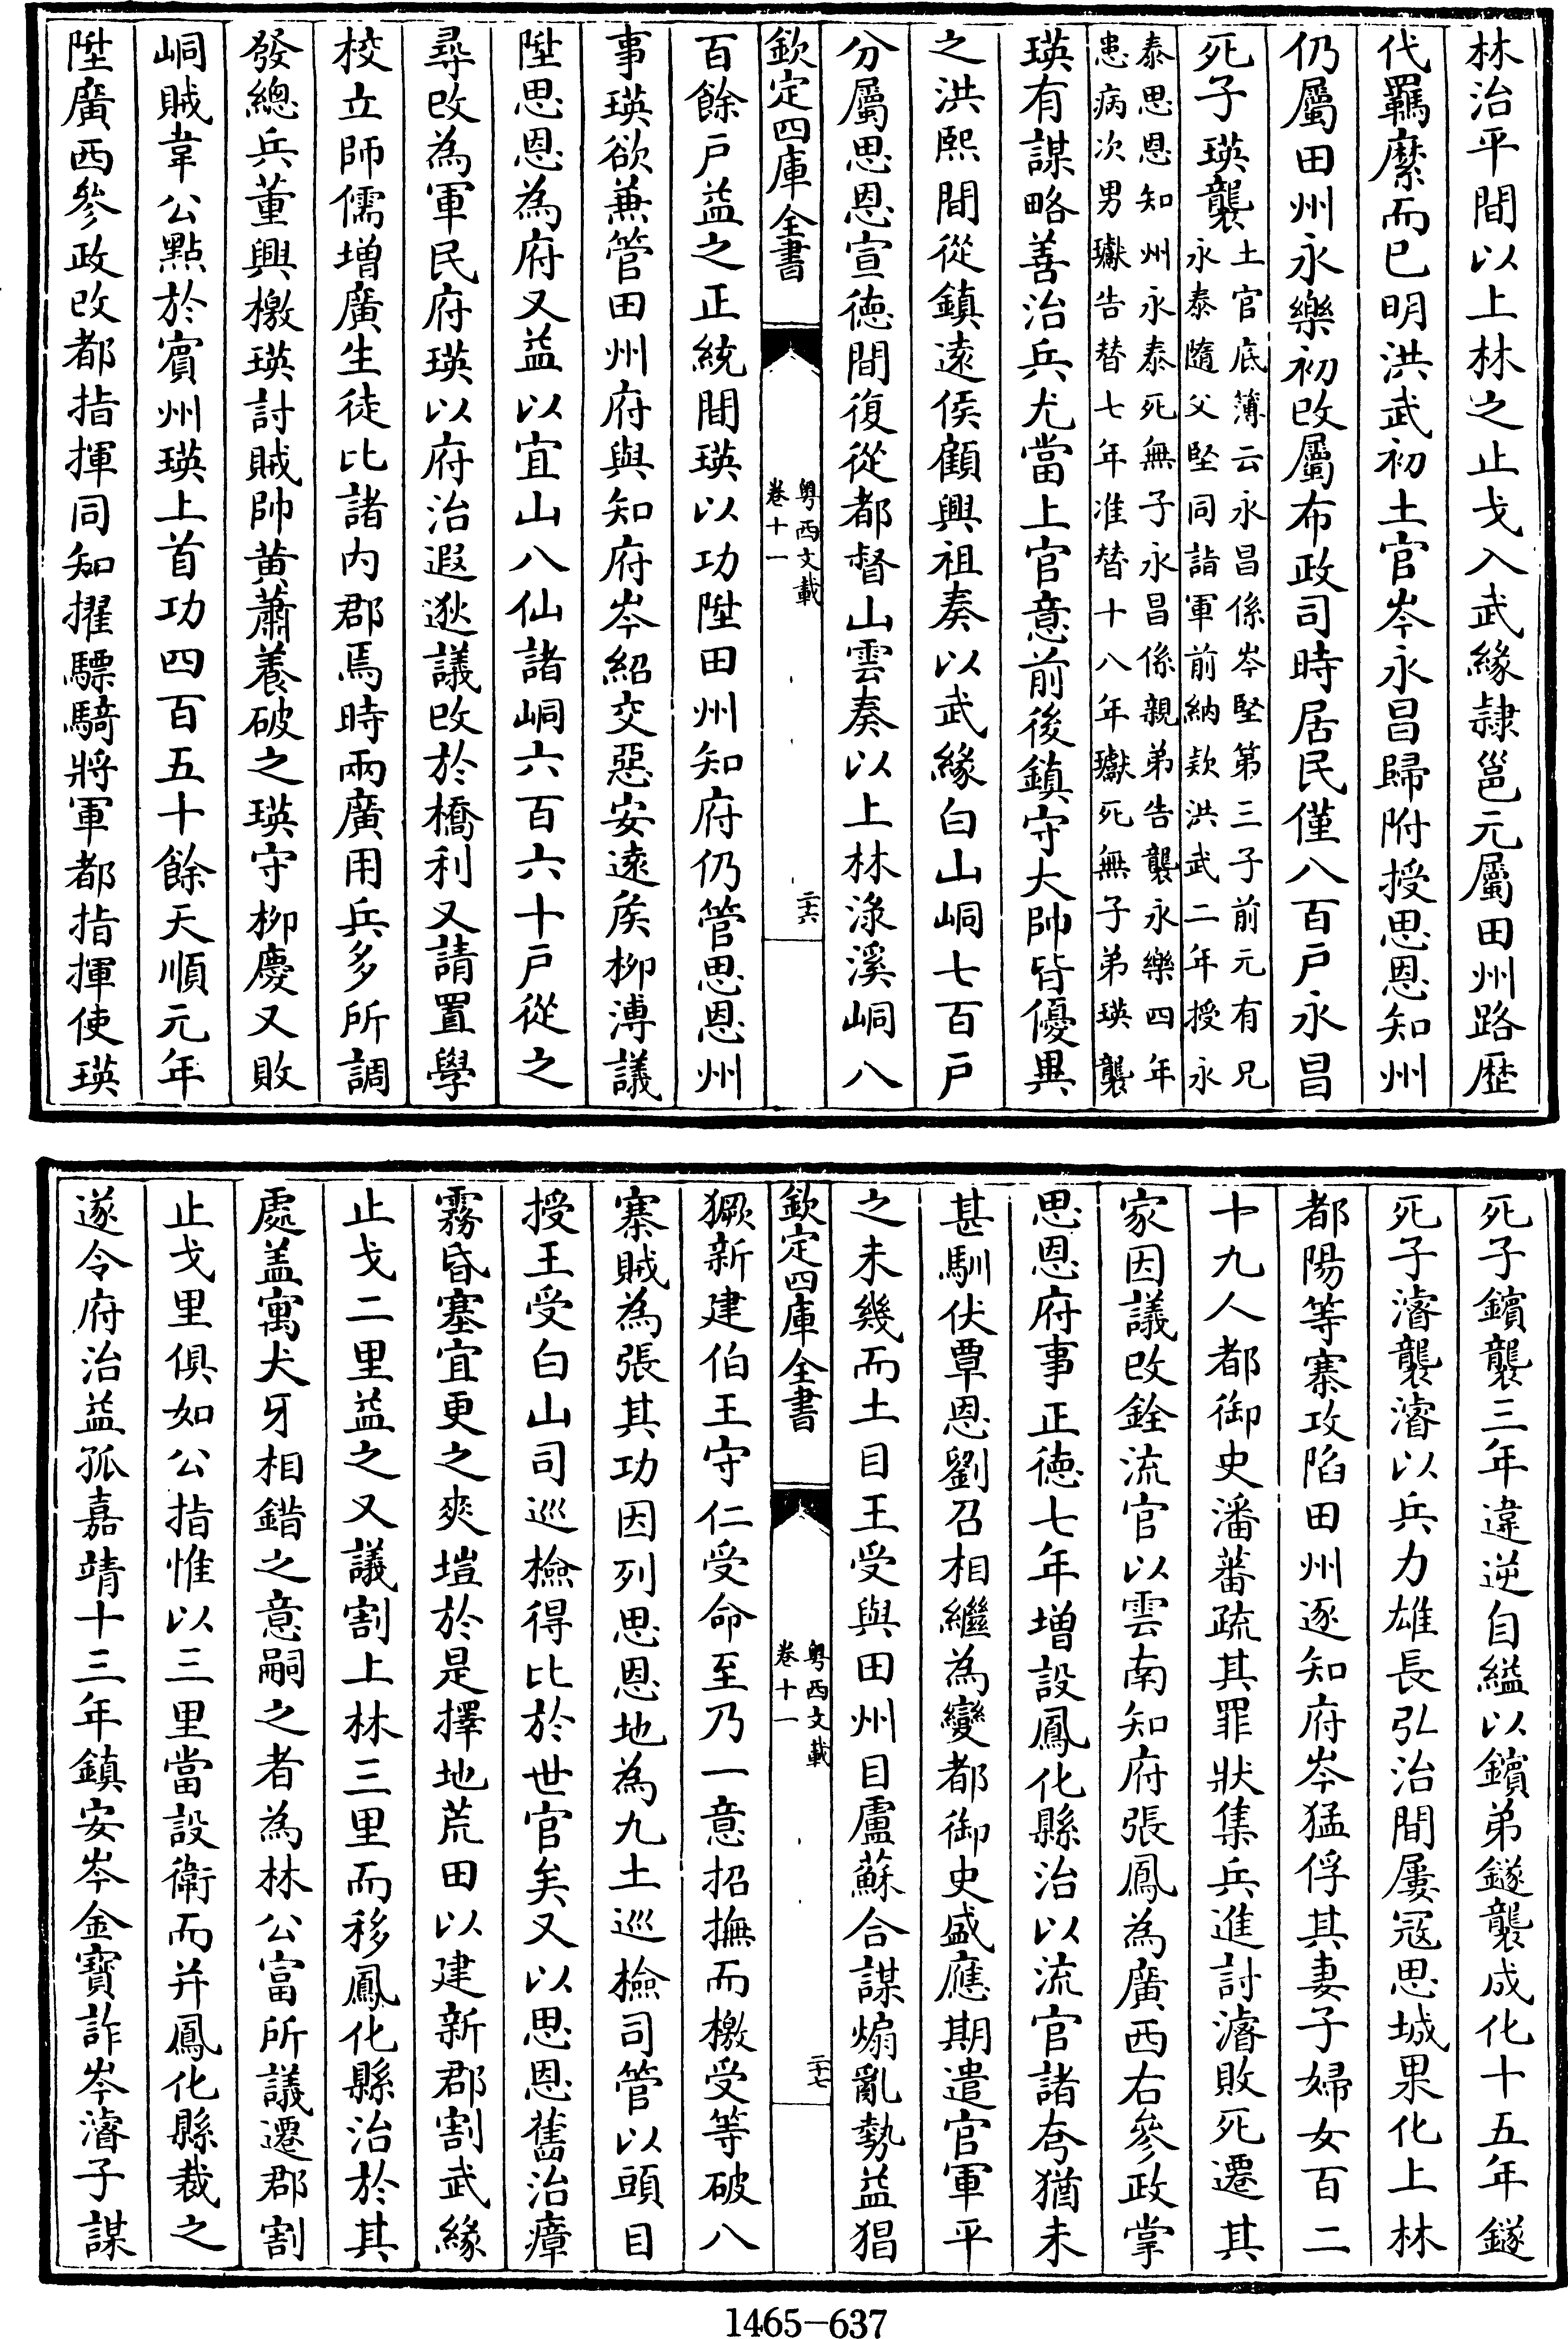 林治平間以上林之止戈入武緣隷邕元屬田州路歴
代羈縻而已明洪武初土官岑永昌歸附授思恩知州
仍屬田州永樂初改屬布政司時居民僅八百戸永昌
死子瑛襲
土官底簿云永昌係岑堅第三子前元有兄
永泰隨父堅同詣軍前納款洪武二年授永
泰思恩知州永泰死無子永昌係親弟告襲永樂四年
患病次男瓛告替七年准替十八年瓛死無子弟瑛襲
瑛有謀略善治兵尤當上官意前後鎮守大帥皆優異
之洪熙間從鎮遠侯顧興祖奏以武緣白山峒七百戸
分屬思恩宣徳間復從都督山雲奏以上林淥溪峒八
欽定四庫全書
粤西文載
卷十一
二十六
百餘戸益之正統間瑛以功陞田州知府仍管思恩州
事瑛欲兼管田州府與知府岑紹交惡安逺矦柳溥議
陞思恩為府又益以宜山八仙諸峒六百六十戸從之
尋改為軍民府瑛以府治遐逖議改於橋利又請置學
校立師儒增廣生徒比諸内郡焉時兩廣用兵多所調
發總兵董興檄瑛討賊帥黄蕭養破之瑛守柳慶又敗
峒賊韋公點於賔州瑛上首功四百五十餘天順元年
陞廣西參政改都指揮同知擢驃騎將軍都指揮使瑛
死子鑌襲三年違逆自縊以鑌弟鐩襲成化十五年鐩
死子濬襲濬以兵力雄長弘治間屢冦思城果化上林
都陽等寨攻陷田州逐知府岑猛俘其妻子婦女百二
十九人都御史潘蕃疏其罪狀集兵進討濬敗死遷其
家因議改銓流官以雲南知府張鳳為廣西右參政掌
思恩府事正徳七年增設鳳化縣治以流官諸夸猶未
甚馴伏覃恩劉召相繼為變都御史盛應期遣官軍平
之未幾而土目王受與田州目盧蘇合謀煽亂勢益猖
欽定四庫全書
粤西文載
卷十一
二十七
獗新建伯王守仁受命至乃一意招撫而檄受等破八
寨賊為張其功因列思恩地為九土巡檢司管以頭目
授王受白山司巡檢得比於世官矣又以思恩舊治瘴
霧昏塞宜更之爽塏於是擇地荒田以建新郡割武緣
止戈二里益之又議割上林三里而移鳳化縣治於其
處盖寓犬牙相錯之意嗣之者為林公富所議遷郡割
止戈里俱如公指惟以三里當設衛而并鳳化縣裁之
遂令府治益孤嘉靖十三年鎮安岑金寳詐岑濬子謀
1465-637